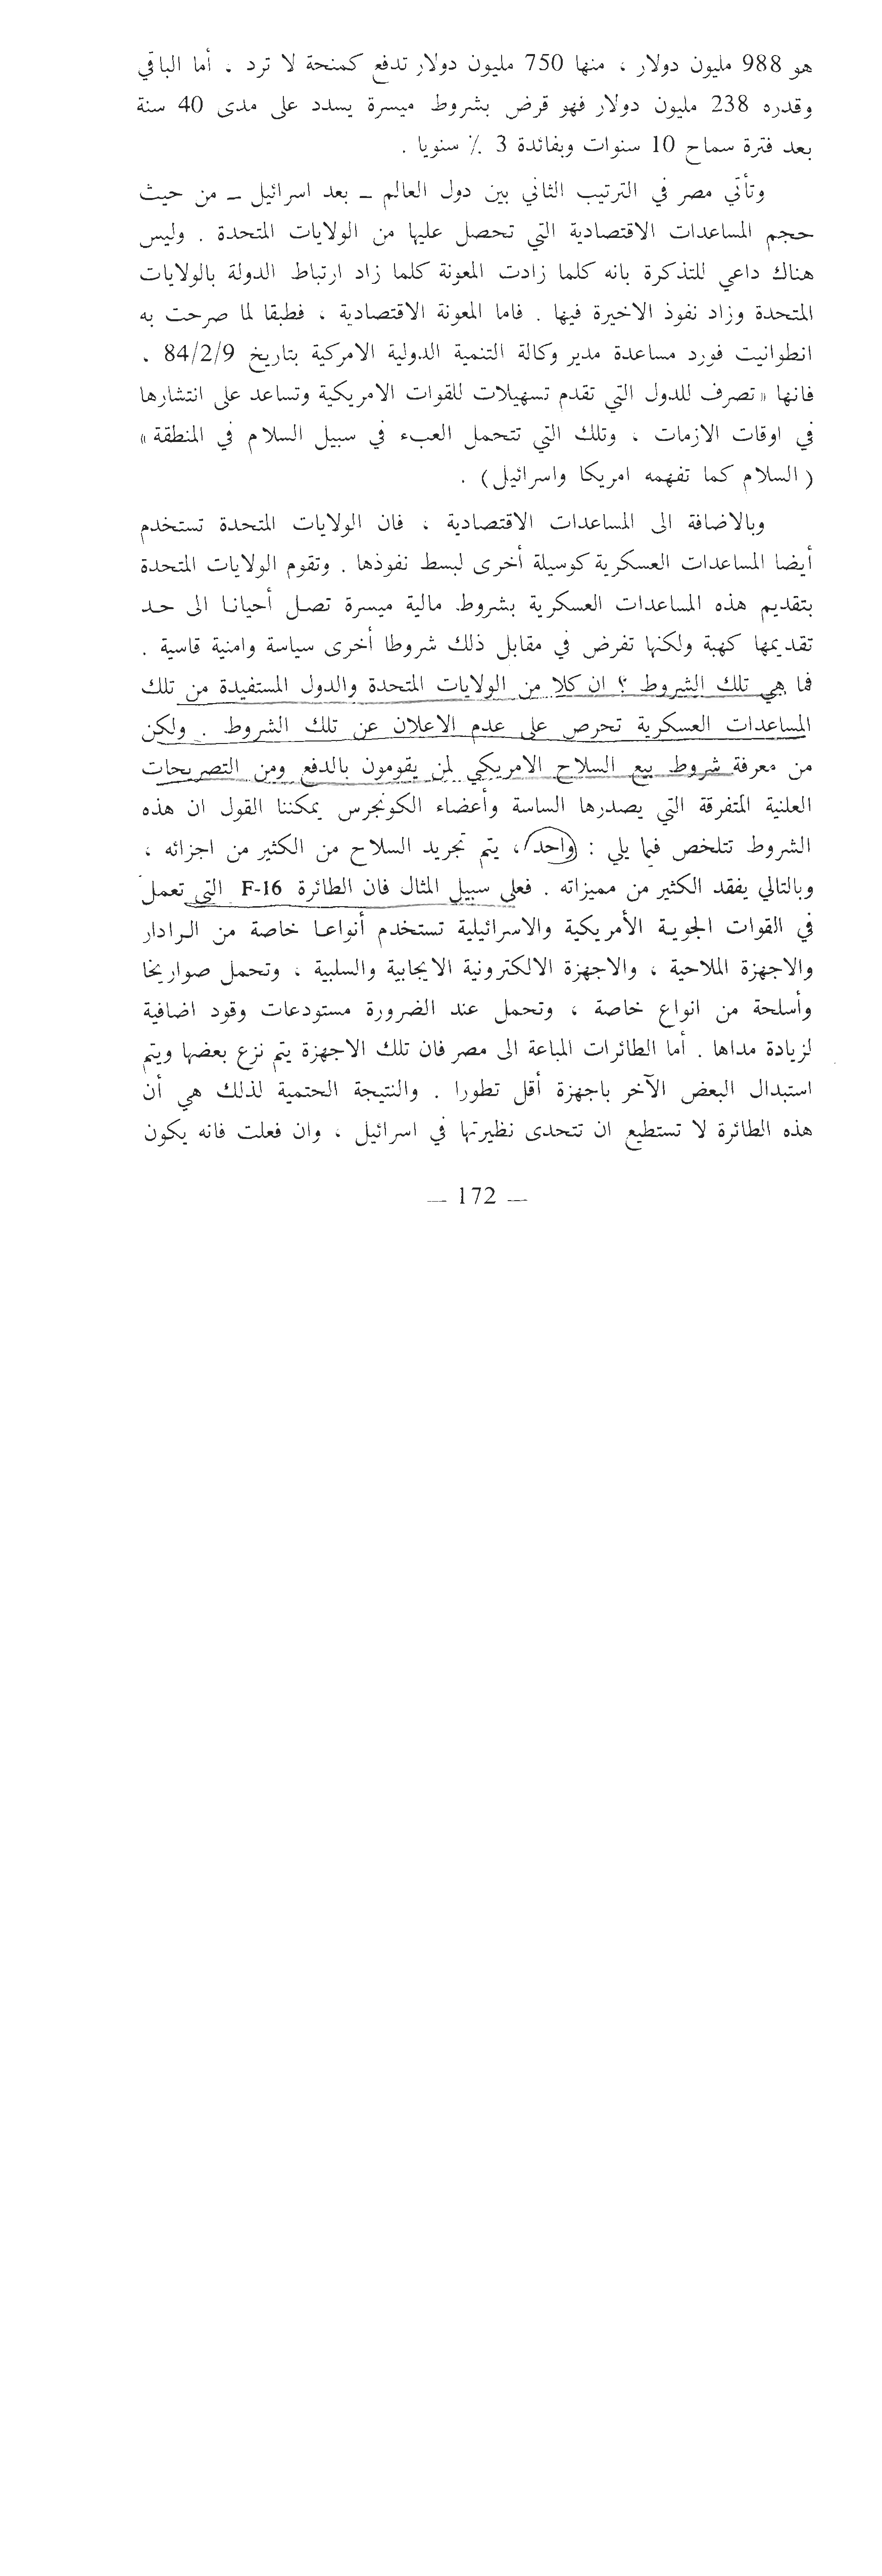 هو 988 مليون دولار ، منها 750 مليون دولار تدفع كمنحة لا ترد . أما الباقي
وقدره 238 مليون دولار فهو قرض بشروط ميسرة يسدد على مدى 40 سنة
بعد فترة سماح 10 سنوات وبفائدة 3 ٪ سنويا .
وتأتي مصر في الترتيب الثاني بين دول العالم – بعد اسرائيل – من حيث
حجم المساعدات الاقتصادية التي تحصل عليها من الولايات المتحدة . وليس
هناك داعي للتذكرة بانه كلما زادت المعونة كلما زاد ارتباط الدولة بالولايات
المتحدة وزاد نفوذ الاخيرة فيها . فاما المعونة الاقتصادية ، فطبقا لما صرحت به
انطوانيت فورد مساعدة مدير وكالة التنمية الدولية الامركية بتاريخ 84/2/9 ،
فانها « تصرف للدول التي تقدم تسهيلات للقوات الامريكية وتساعد على انتشارها
في اوقات الازمات ، وتلك التي تتحمل العبء في سبيل السلام في المنطقة »
( السلام كما تفهمه امريكا واسرائيل) .
وبالاضافة الى المساعدات الاقتصادية ، فان الولايات المتحدة تستخدم
أيضا المساعدات العسكرية كوسيلة أخرى لبسط نفوذها . وتقوم الولايات المتحدة
بتقديم هذه المساعدات العسكرية بشروط مالية ميسرة تصل أحيانا الى حد
تقديمها كهبة ولكنها تفرض في مقابل ذلك شروطا أخرى سياسة وامنية قاسية .
فما هي تلك الشروط ؟ ان كلا من الولايات المتحدة والدول المستفيدة من تلك
المساعدات العسكرية تحرص على عدم الاعلان عن تلك الشروط . ولكن
من معرفة شروط بيع السلاح الامريكي لمن يقومون بالدفع ومن التصريحات
العلنية المتفرقة التي يصدرها الساسة وأعضاء الكونجرس يمكننا القول ان هذه
الشروط تتلخص فيما يلي : واحد ، يتم تجريد السلاح من الكثير من اجزائه ،
وبالتالي يفقد الكثير من مميزاته . فعلى سبيل المثال فان الطائرة F-16 التي تعمل
في القوات الجوية الأمريكية والاسرائيلية تستخدم أنواعا خاصة من الرادار
والاجهزة الملاحية ، والاجهزة الالكترونية الايجابية والسلبية ، وتحمل صواريخا
وأسلحة من انواع خاصة ، وتحمل عند الضرورة مستودعات وقود اضافية
لزيادة مداها . أما الطائرات المباعة الى مصر فان تلك الاجهزة يتم نزع بعضها ويتم
استبدال البعض الآخر باجهزة أقل تطورا . والنتيجة الحتمية لذلك هي أن
هذه الطائرة لا تستطيع ان تتحدى نظيرتها في اسرائيل ، وان فعلت فانه يكون
— 172 —